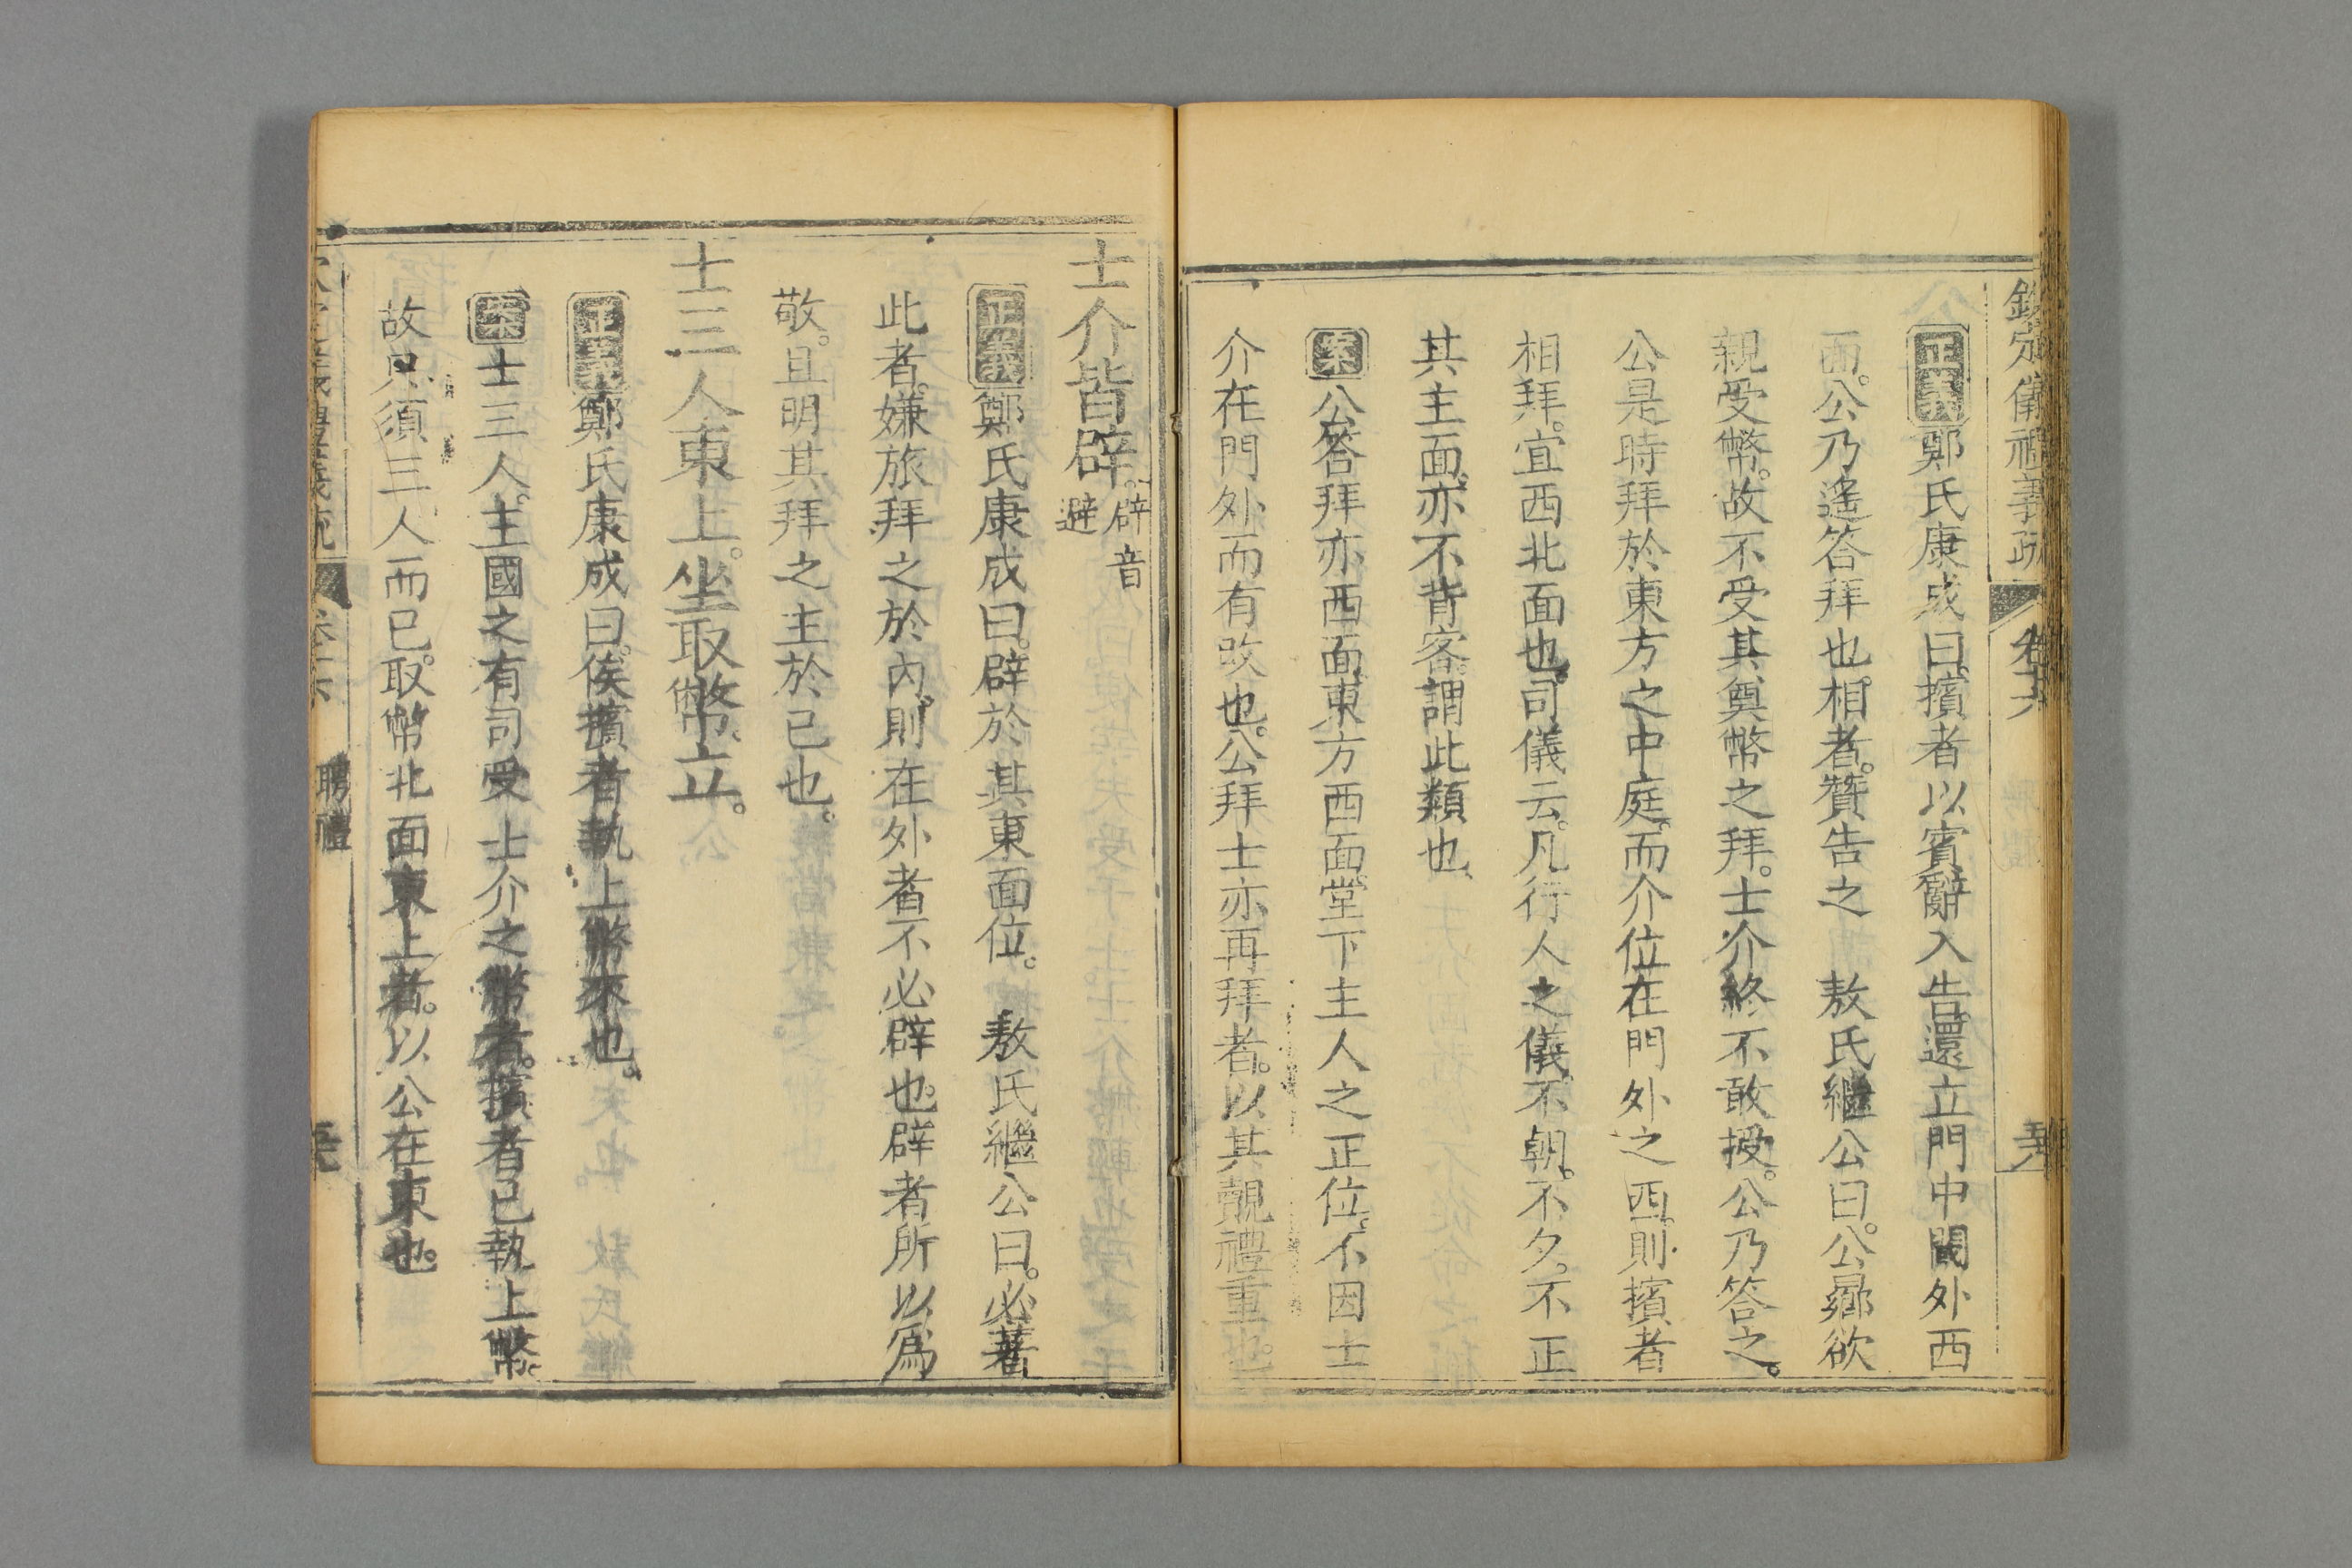 欽定儀禮義疏 卷十六
正義鄭氏康成曰。擯者以賓辭入告。還立門中閾外西
面。公乃遙答拜也。相者。贊告之 敖氏繼公曰。公鄉欲
親受幣。故不受其奠幣之拜。士介終不敢授。公乃答之。
公是時拜於東方之中庭。而介位在門外之西。則擯者
相拜。宜西北面也。司儀云。凡行人之儀。不朝。不夕。不正
其主面。亦不背客。謂此類也。
案公答拜亦西面。東方西面。堂下主人之正位。不因士
介在門外而有改也。公拜士亦再拜者。以其覿禮重也。
士介皆辟。辟音避
正義鄭氏康成曰。辟於其東面位。 敖氏繼公曰。必著
此者。嫌旅拜之於內。則在外者不必辟也。辟者所以爲
敬。且明其拜之主於已也。
士三人東上。坐取幣。立。
正義鄭氏康成曰。俟擯者執上幣來也。
案士三人。主國之有司受士介之幣者。擯者已執上幣。
故只須三人而已。取幣北面東上者。以公在東也。
卷十六 聘禮